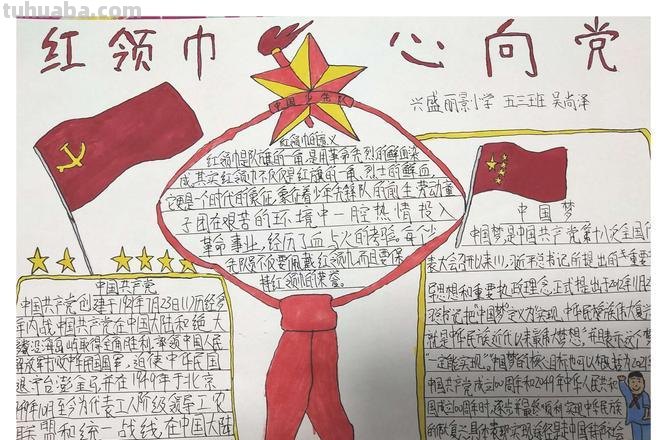 tuhuaba.com
红领巾 心向党
兴盛丽景小学 五三班 吴尚泽
中国少先队
红领巾的意义
红领巾是队旗的一角,是用革命先烈的鲜血染
成,其实红领巾不仅仅是红旗的一角,烈士的鲜血
它更是一个时代的象征,象征着少年先锋队的前生劳动童
子团在艰苦的环境中一腔热情投入
革命事业,经历了血与火的考验。每个少
先队员不仅要佩戴红领巾而且要保
持红领巾的荣誉。
中国共产党
中国共产党创建于1921年7月23日
年内战,中国共产党在中国大陆和绝大
取得全面胜利,率领中国人民
解放军 中华民国国军,迫使中华民国
退守台澎金马,并在1949年于北京
为代表工人阶级领导工农
联盟和统一战线在中国大陆
中国梦
中国梦是中国共产党第十八次全国
表大会召开以来,习近平总书记所提出的重要
思想和重要执政理念,正式提出于2012年11月2
书记把"中国梦"定义为"实现中华民族伟大复
就是中华民族近代以来最伟大梦想",并且表示这个梦
"一定能实现"。"中国梦"的核心目标也可以概括为
中国共产党成立100周年和2049年中华人民共和
国成立100周年时,逐步并最终顺利实现中华民族
的伟大复兴,具体表现